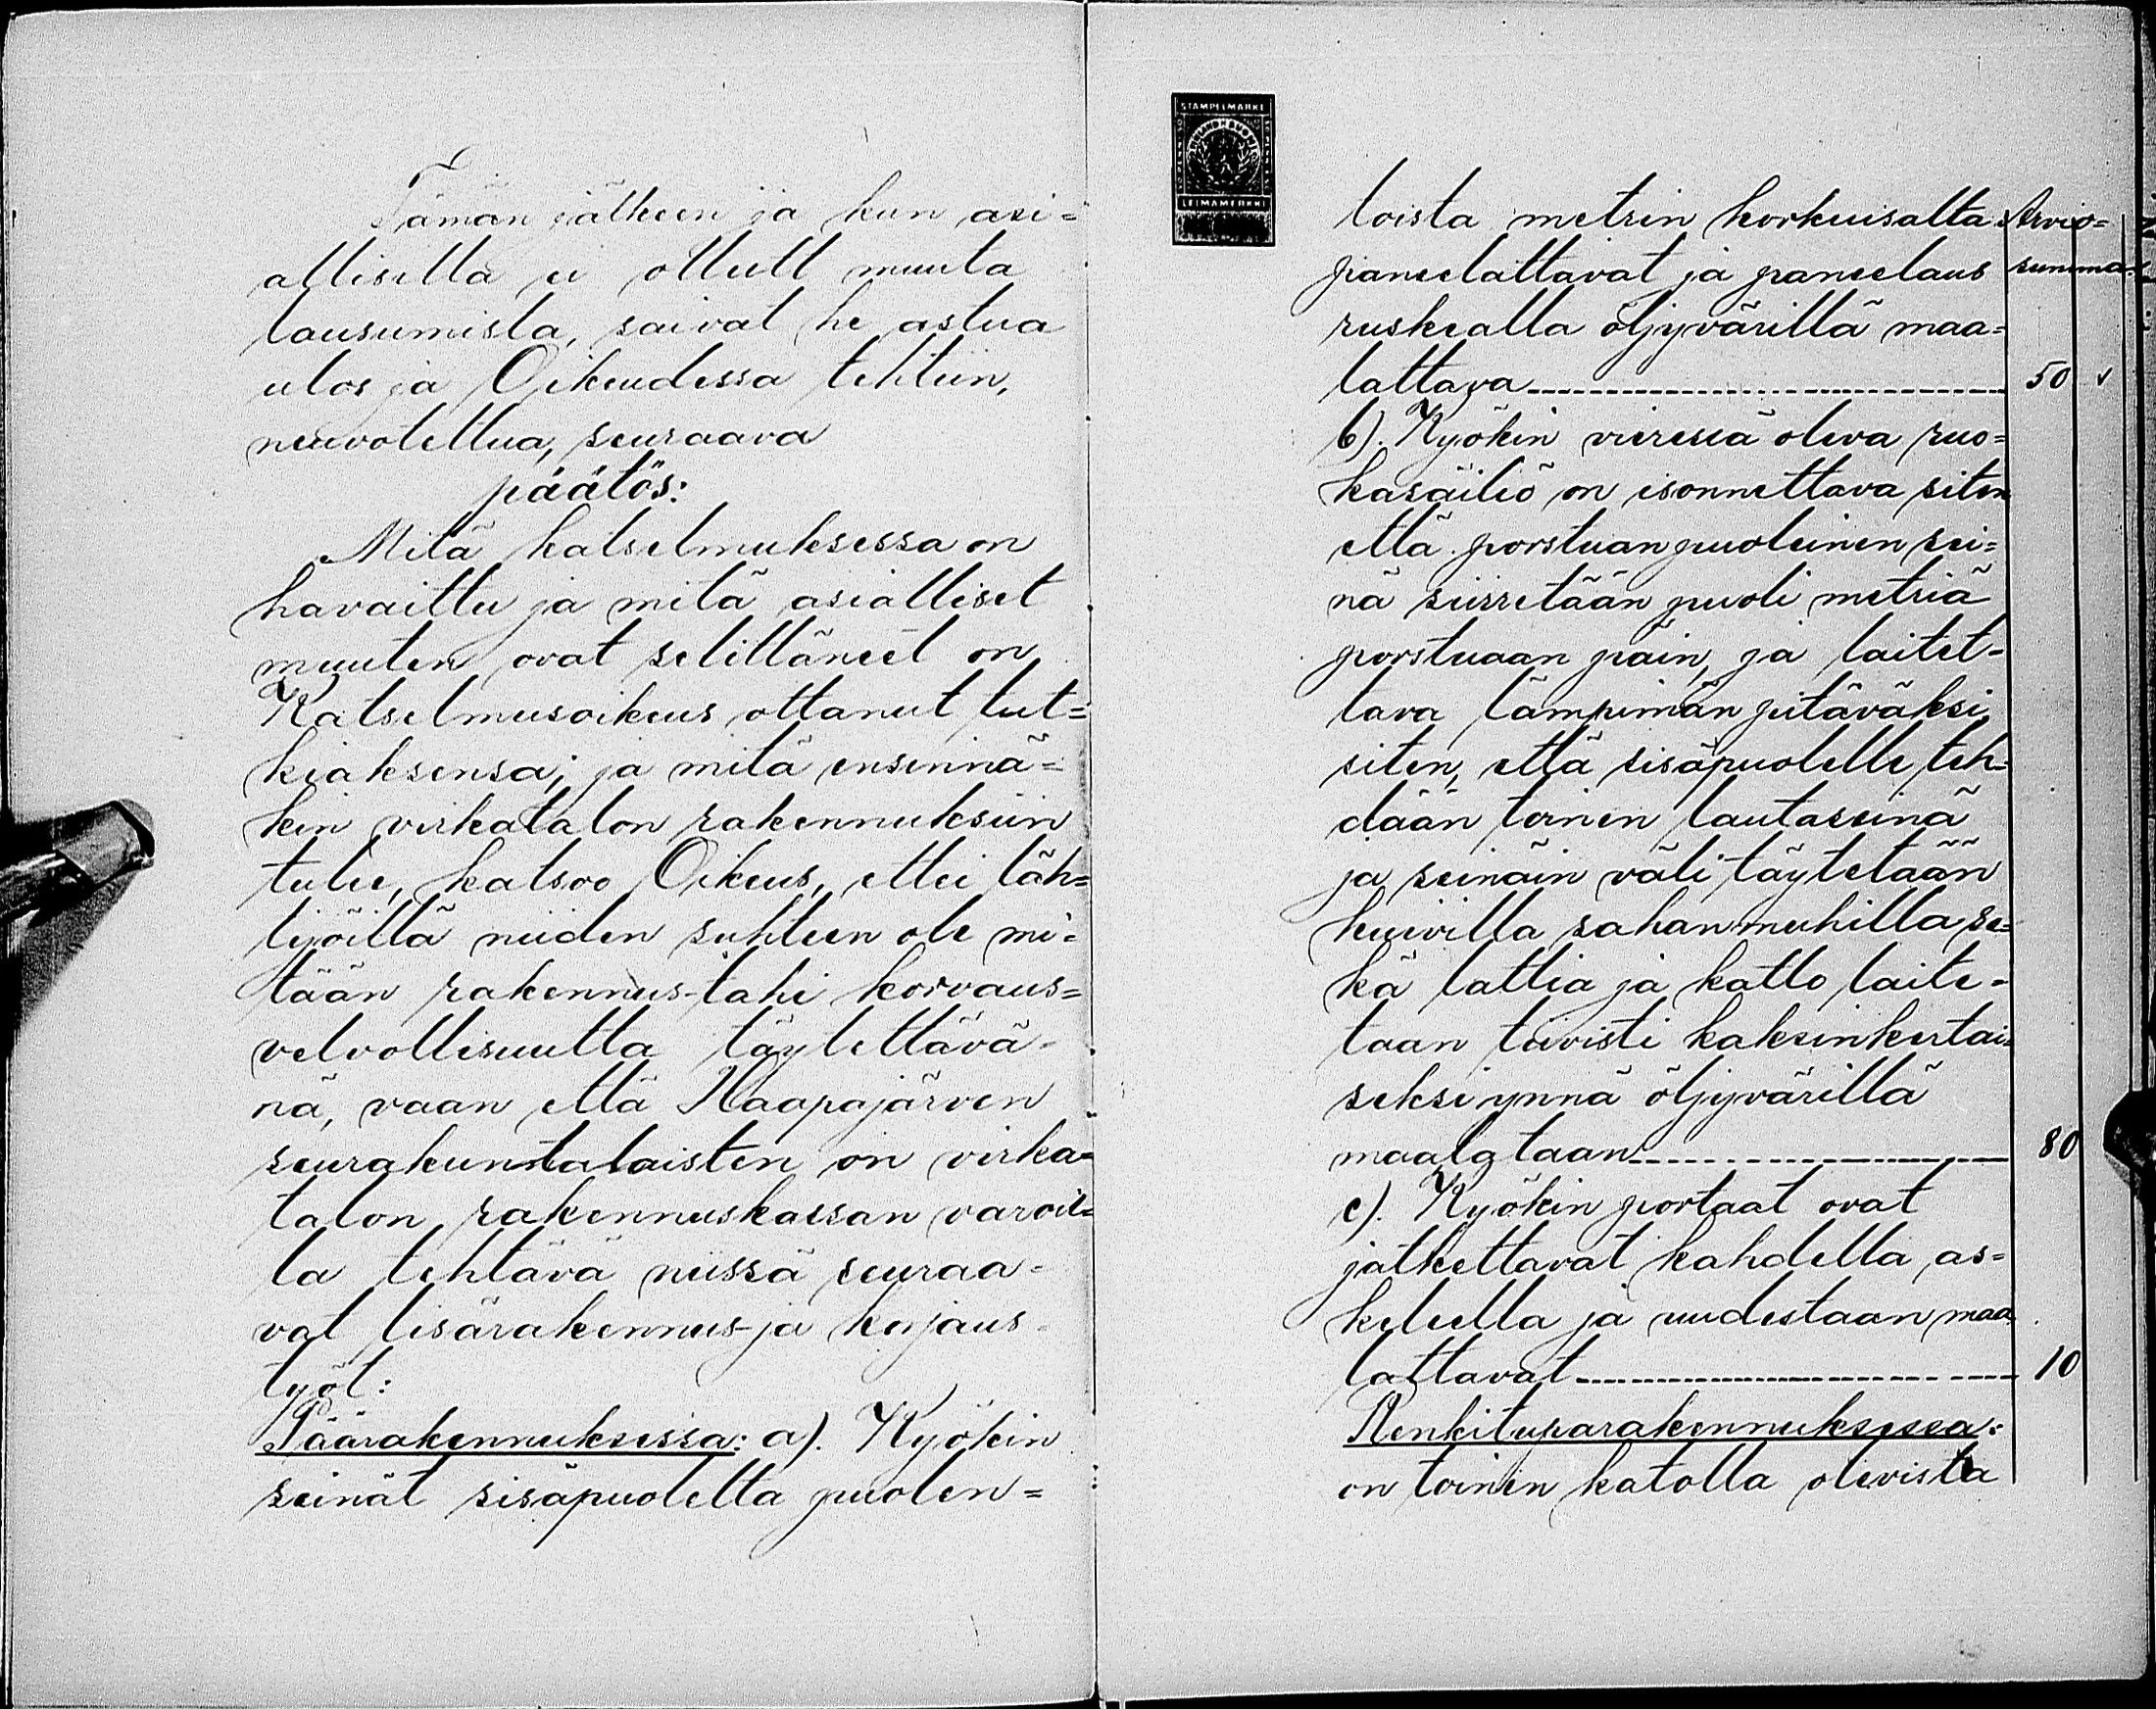 Tämän jälkeen ja kun asi=
allisilla ei ollutt muuta
lausumista, saivat he astua
ulos ja Oikeudessa tehtiin,
neuvoteltua, seuraava
päätös:
Mitä katselmuksessa on
havaittu ja mitä asialliset
muuten ovat selittäneet on
Katselmusoikeus ottanut tut=
kiaksensa; ja mitä ensinnä=
kin virkatalon rakennuksiin
tulee, katsoo Oikeus, ettei läh=
tijöillä niiden suhteen ole mi=
tään rakennus- tahi korvaus=
velvollisuutta täytettävä-
nä, vaan että Haapajärven
seurakuntalaisten on virka=
talon rakennuskassan varoil=
la tehtävä niissä seuraa-
vat lisärakennus- ja korjaus-
työt:
Päärakennuksessa: a). Kyökin
seinät sisäpuolelta puolen=
STAMPELMARKE
LEIMAMERKKI
toista metrin korkuisalta
paneelattavat ja paneelaus
ruskealla öljyvärillä maa=
lattava 50
b). Kyökin vieressä oleva ruo=
kasäiliö on isonnettava siten
että porstuanpuoleinen sei=
nä siirretään puoli metriä
porstuaan päin, ja laitet-
tava lämpimän pitäväksi
siten, että sisäpuolelle teh=
dään toinen lautaseinä
ja seinäin väli täytetään
kuivilla sahanmuhilla se=
kä lattia ja katto laite-
taan tiivisti kaksinkertai=
seksi ynnä öljyvärillä
maalataan 80
c). Kyökin portaat ovat
jatkettavat kahdella as=
keleella ja uudestaan maa
lattavat 10
Renkituparakennuksessa:
on toinen katolla olevista
Arvio=
summa.